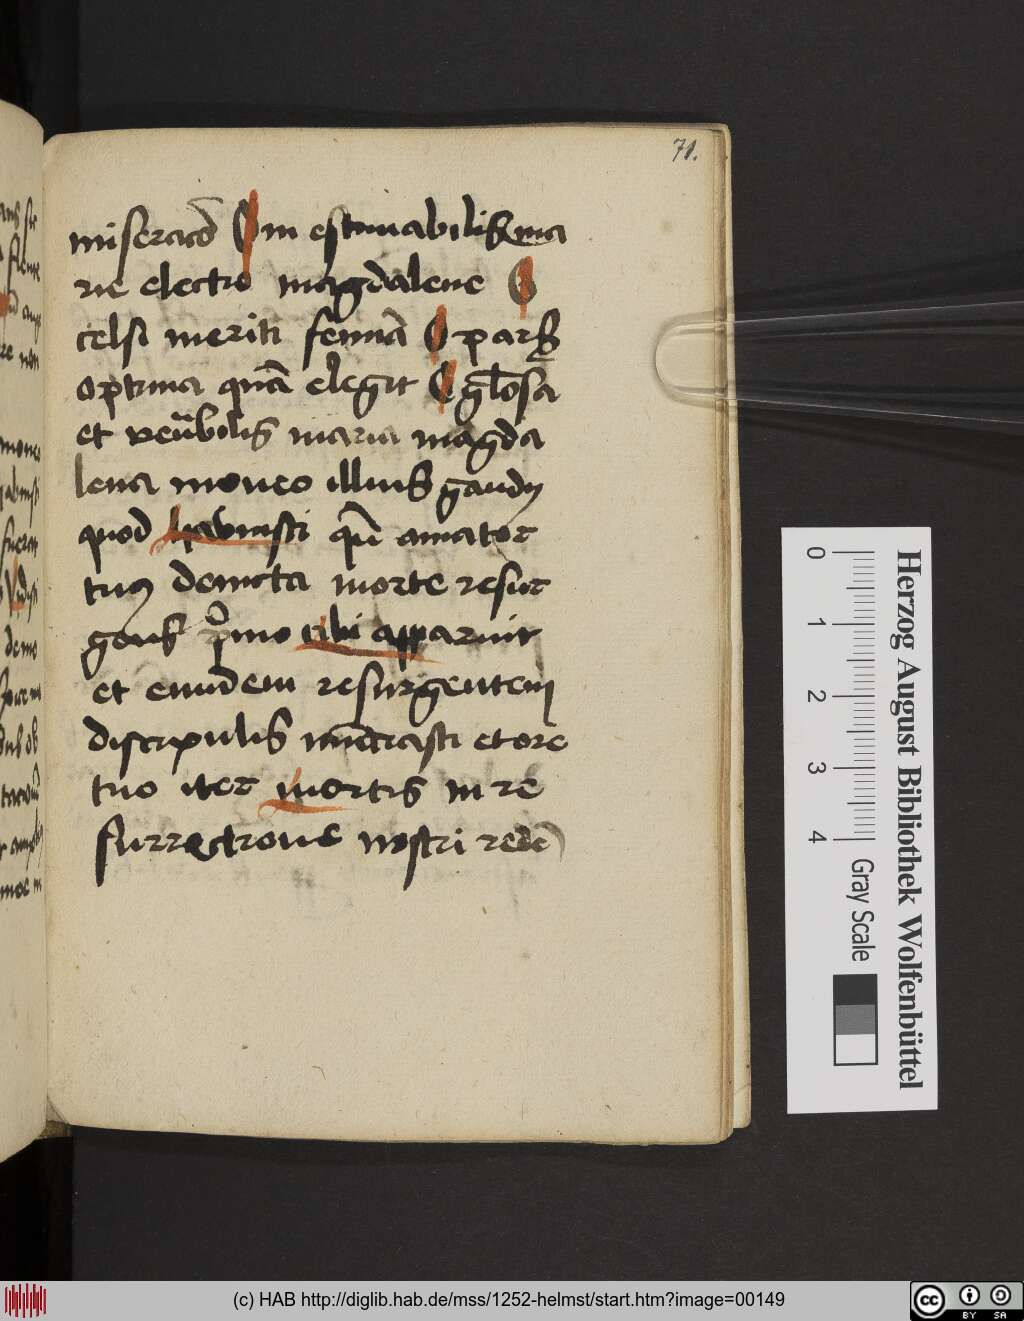 71.
miseracõ O in estimabilis ma
rie electio magdalene O
celsi meriti femiā O pars
optima quā elegit O glosa
et veñbilis maria magda
lena moneo illius gaudij
quod habuisti qñ amator
tuus deuicta morte resur
gens pmo tibi apparuit
et eundem resurgentem
discipulis nūciasti et ore
tuo iter mortis in re
surrectione nostri rede
Herzog August Bibliothek Wolfenbüttel
0 1 2 3 4 Gray Scale
(c) HAB http://diglib.hab.de/mss/1252-helmst/start.htm?image=00149
cc BY SA